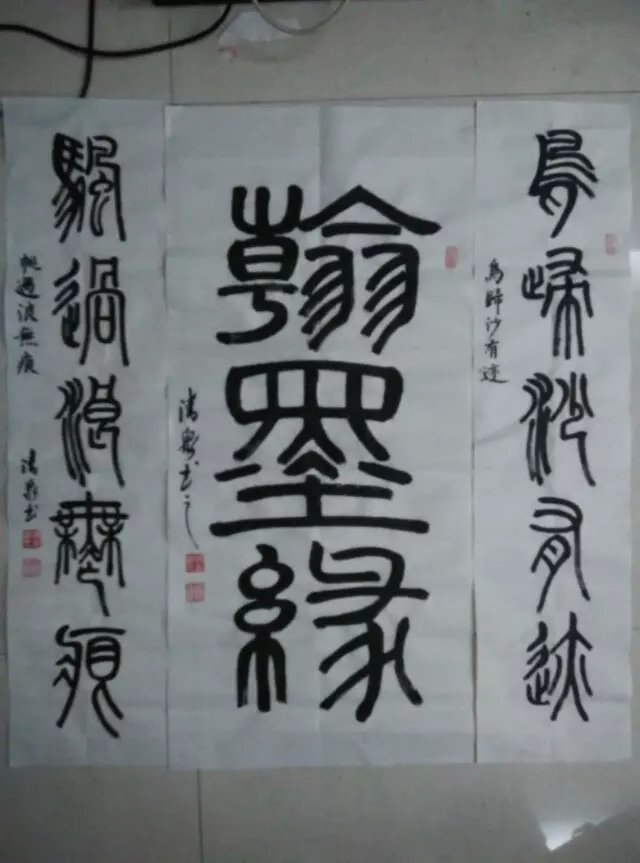 鳥歸沙有迹
鳥歸沙有迹
翰墨緣
清泉书之
颿過浪無痕
帆過浪無痕
清泉书